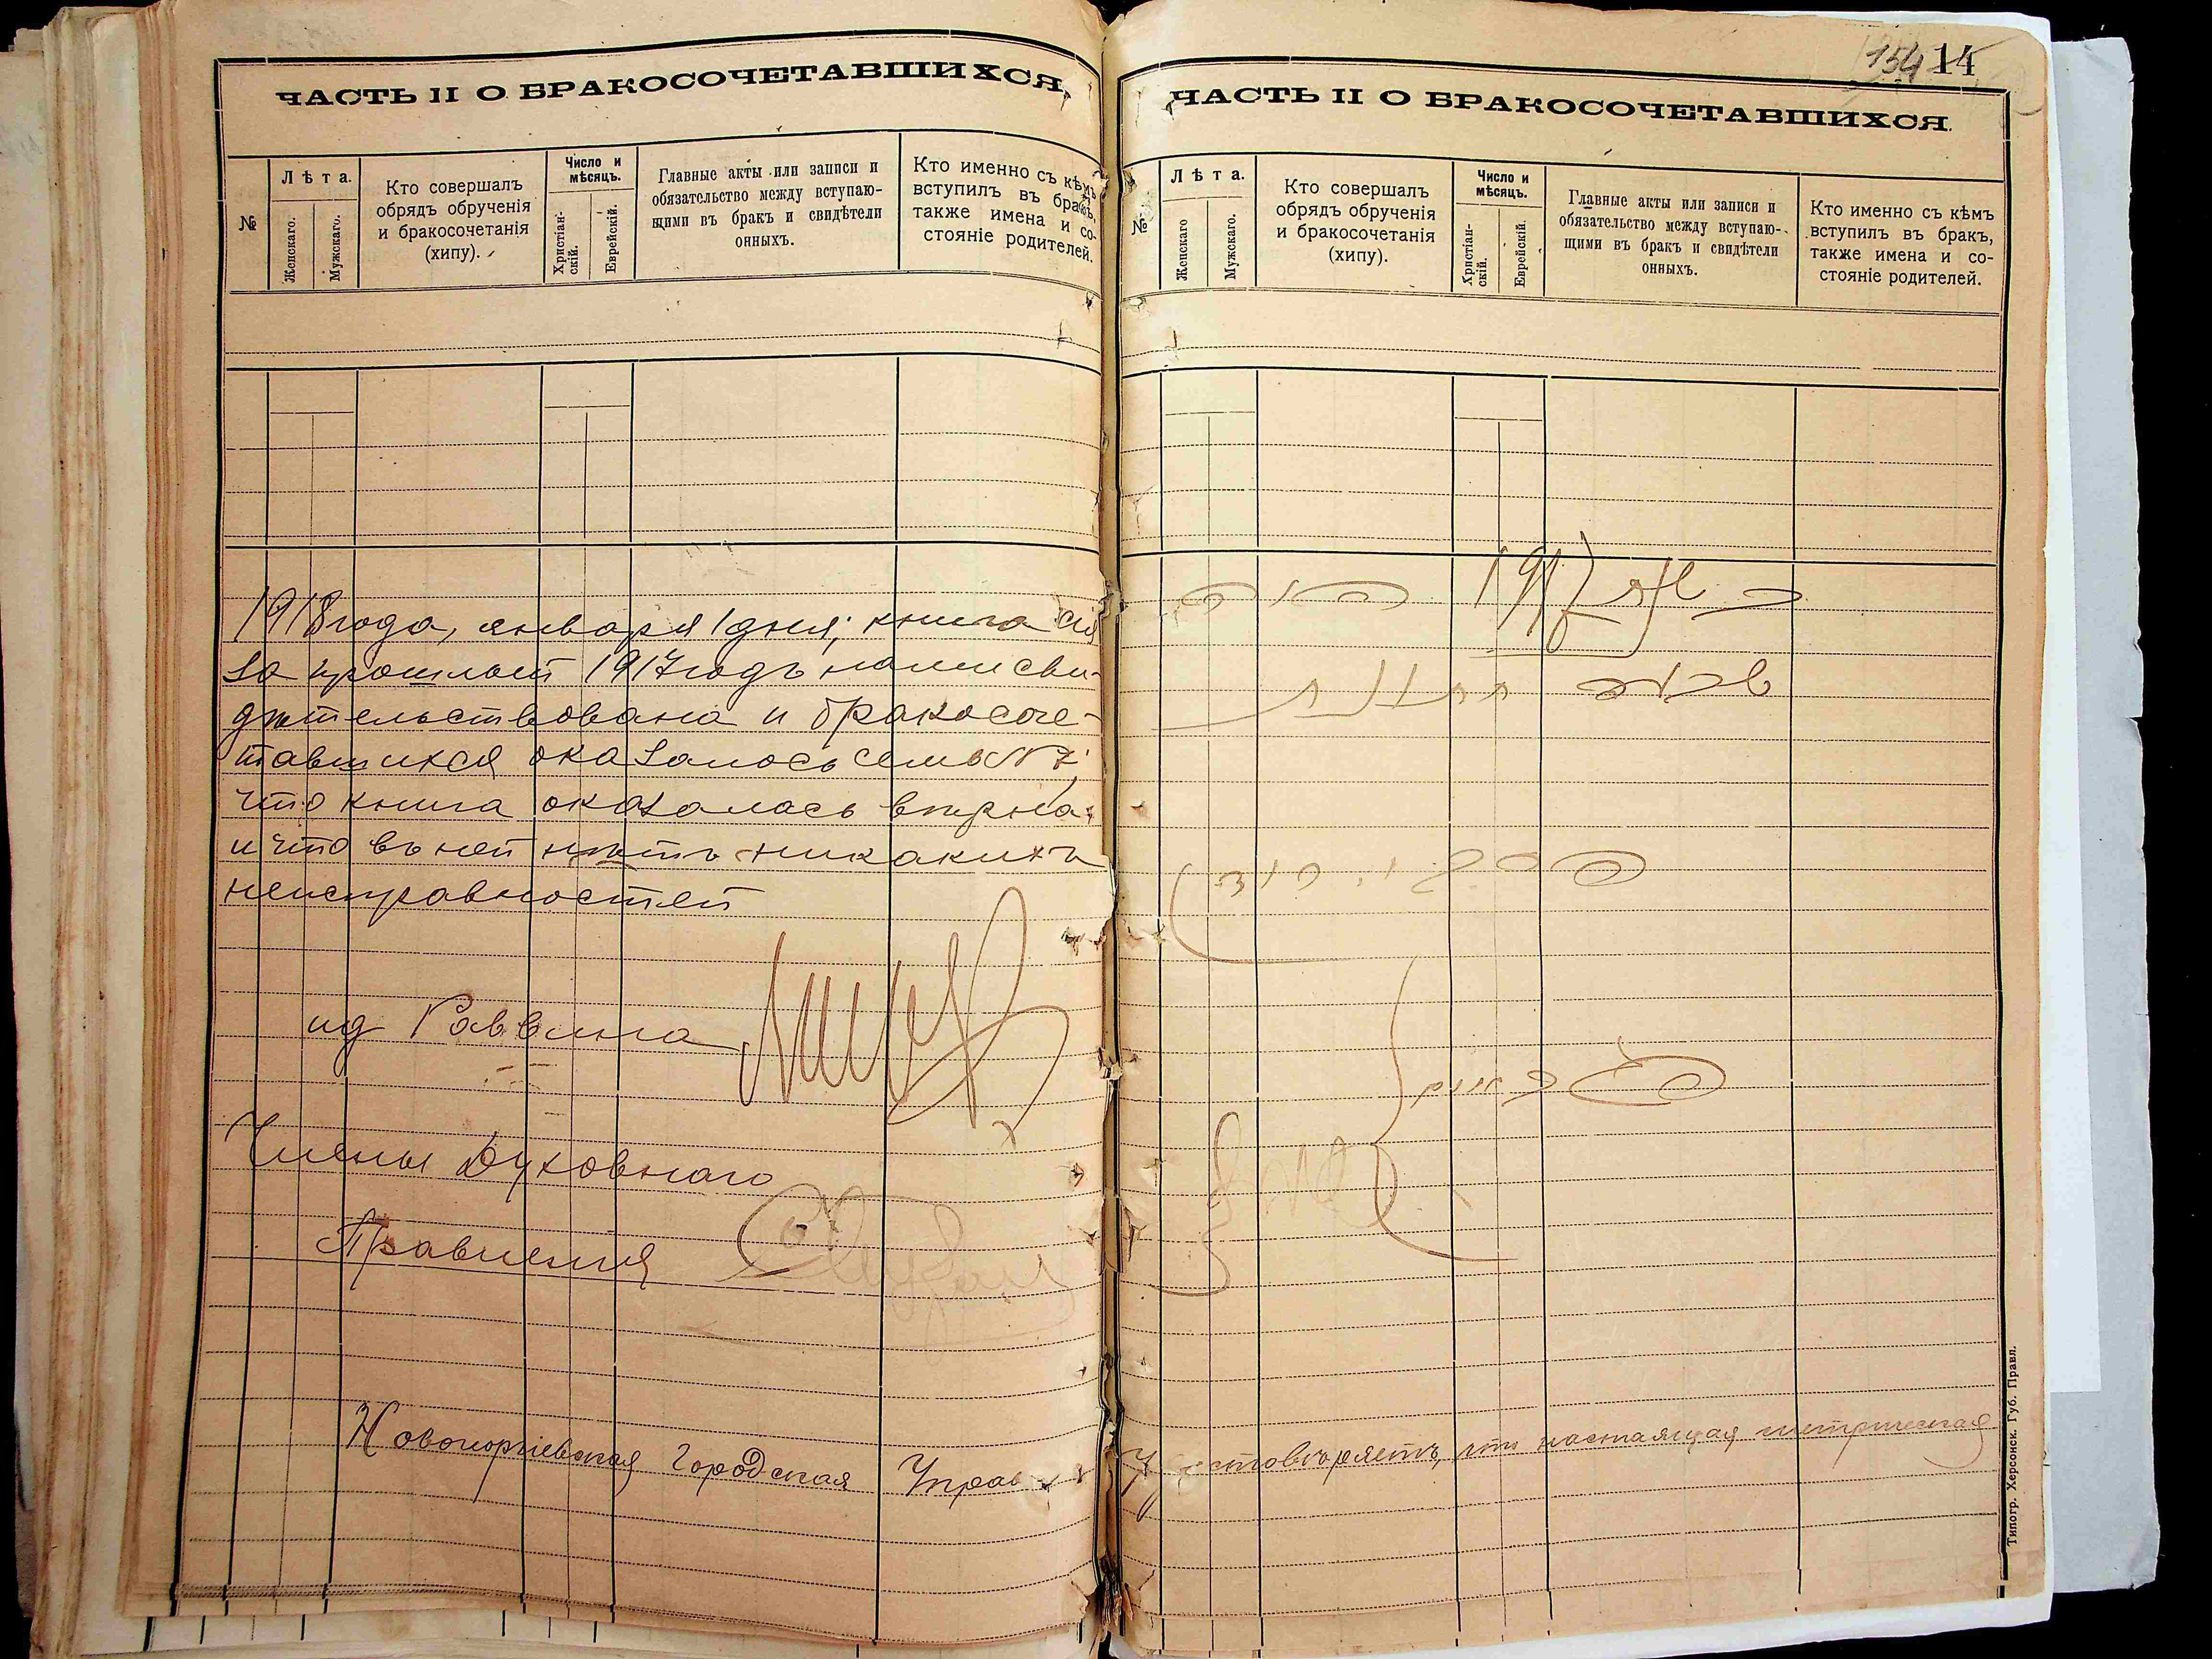 ЧАСТЬ II О БРАКОСОЧЕТАВШИХСЯ.
№
Лѣта.
Женскаго.
Мужскаго.
Кто совершалъ
обрядъ обрученія
и бракосочетанія
(хипу).
Число и
мѣсяцъ.
Христіан-
скій.
Еврейскій.
Главные акты или записи и
обязательство между вступаю-
щими въ бракъ и свидѣтели
онныхъ.
Кто именно съ кѣмъ
вступилъ въ бракъ,
также имена и со-
стояніе родителей.
1918 года, января 1 дня, книга сія
за прошлый 1917 годъ нами сви-
дѣтельствована и бракосоче-
тавшихся оказалось семь № 7,
что книга оказалась вѣрна
и что въ ней нѣтъ никакихъ
неисправностей
ид Раввина
Члены Духовнаго
Правленія
Новогеоргіевская Городская Управа
154 14
ЧАСТЬ II О БРАКОСОЧЕТАВШИХСЯ.
№
Лѣта.
Женскаго
Мужскаго.
Кто совершалъ
обрядъ обрученія
и бракосочетанія
(хипу).
Число и
мѣсяцъ.
Христіан-
скій.
Еврейскій.
Главные акты или записи и
обязательство между вступаю-
щими въ бракъ и свидѣтели
онныхъ.
Кто именно съ кѣмъ
вступилъ въ бракъ,
также имена и со-
стояніе родителей.
1917
удостовѣряетъ, что настоящая метрическая
Типогр. Херсонск. Губ. Правл.